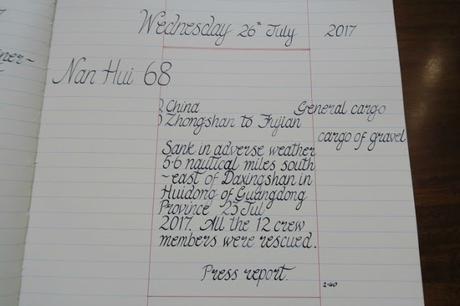 Wednesday 26th July 2017
Nan Hui 68
China General cargo
Zhongshan to Fujian
cargo of gravel
Sank in adverse weather
5·6 nautical miles south
-east of Daxingshan in
Huidong of Guangdong
Province 25 Jul
2017. All the 12 crew
members were rescued.
Press report.